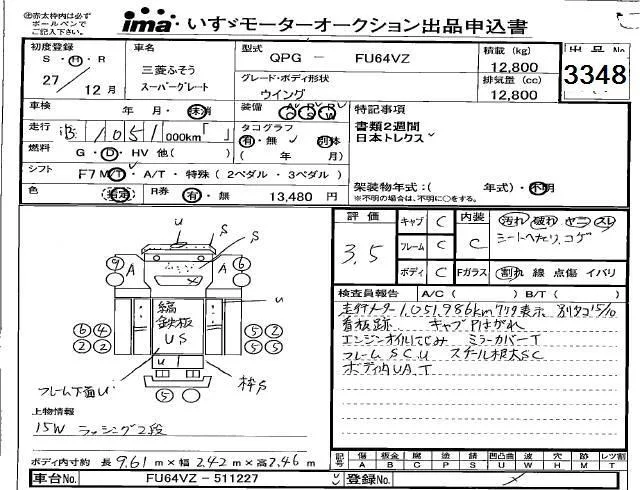 ㊟赤太枠内は必ず
ボールペンで
ご記入下さい。
ima・いすゞモーターオークション出品申込書
初度登録
S・H・R
27/12月
車名
三菱ふそう
スーパーグレート
型式
QPG - FU64VZ
グレード・ボディ形状
ウイング
積載 (kg)
12,800
排気量 (cc)
12,800
出品No
3348
車検
年・月・抹消
装備
走行
1051,000km「 」
タコグラフ
有・無 別体
( 年 / 月)
燃料
G・D・HV 他( )
シフト
F7 M/T・A/T・特殊(2ペダル・3ペダル)
色
指定
R券
有・無
13,480 円
特記事項
書類2週間
日本トレクス
架装物年式:( 年式)・不明
※不明の場合は、不明に○をする。
評価
3.5
キャブ C
フレーム C
ボディ C
内装
C
Fガラス
汚れ 破れ ヤニ スレ
シートへたり、コゲ
割れ 線 点傷 イバリ
検査員報告 A/C( ) B/T( )
走行メーター1,051,986km
看板跡 キャブPはがれ
エンジンオイルにじみ ミラーカバーT
フレームSCU
ボディ内UA、T
u
S
S
⑨
A
A
⑥
u
縞
鉄板
US
⑥④
②②
⑤②
②②
u
フレーム下面U
枠S
⑤
上物情報
15W ラッシング2段
ボディ内寸約 長 9.61 m×幅 2.42 m×高 2.46 m
記号
傷 板金 腐 塗 錆 凹凸曲 波 穴 跡 レツ割
A B C P S U W H M T
車台No.
FU64VZ-511227
登録No.